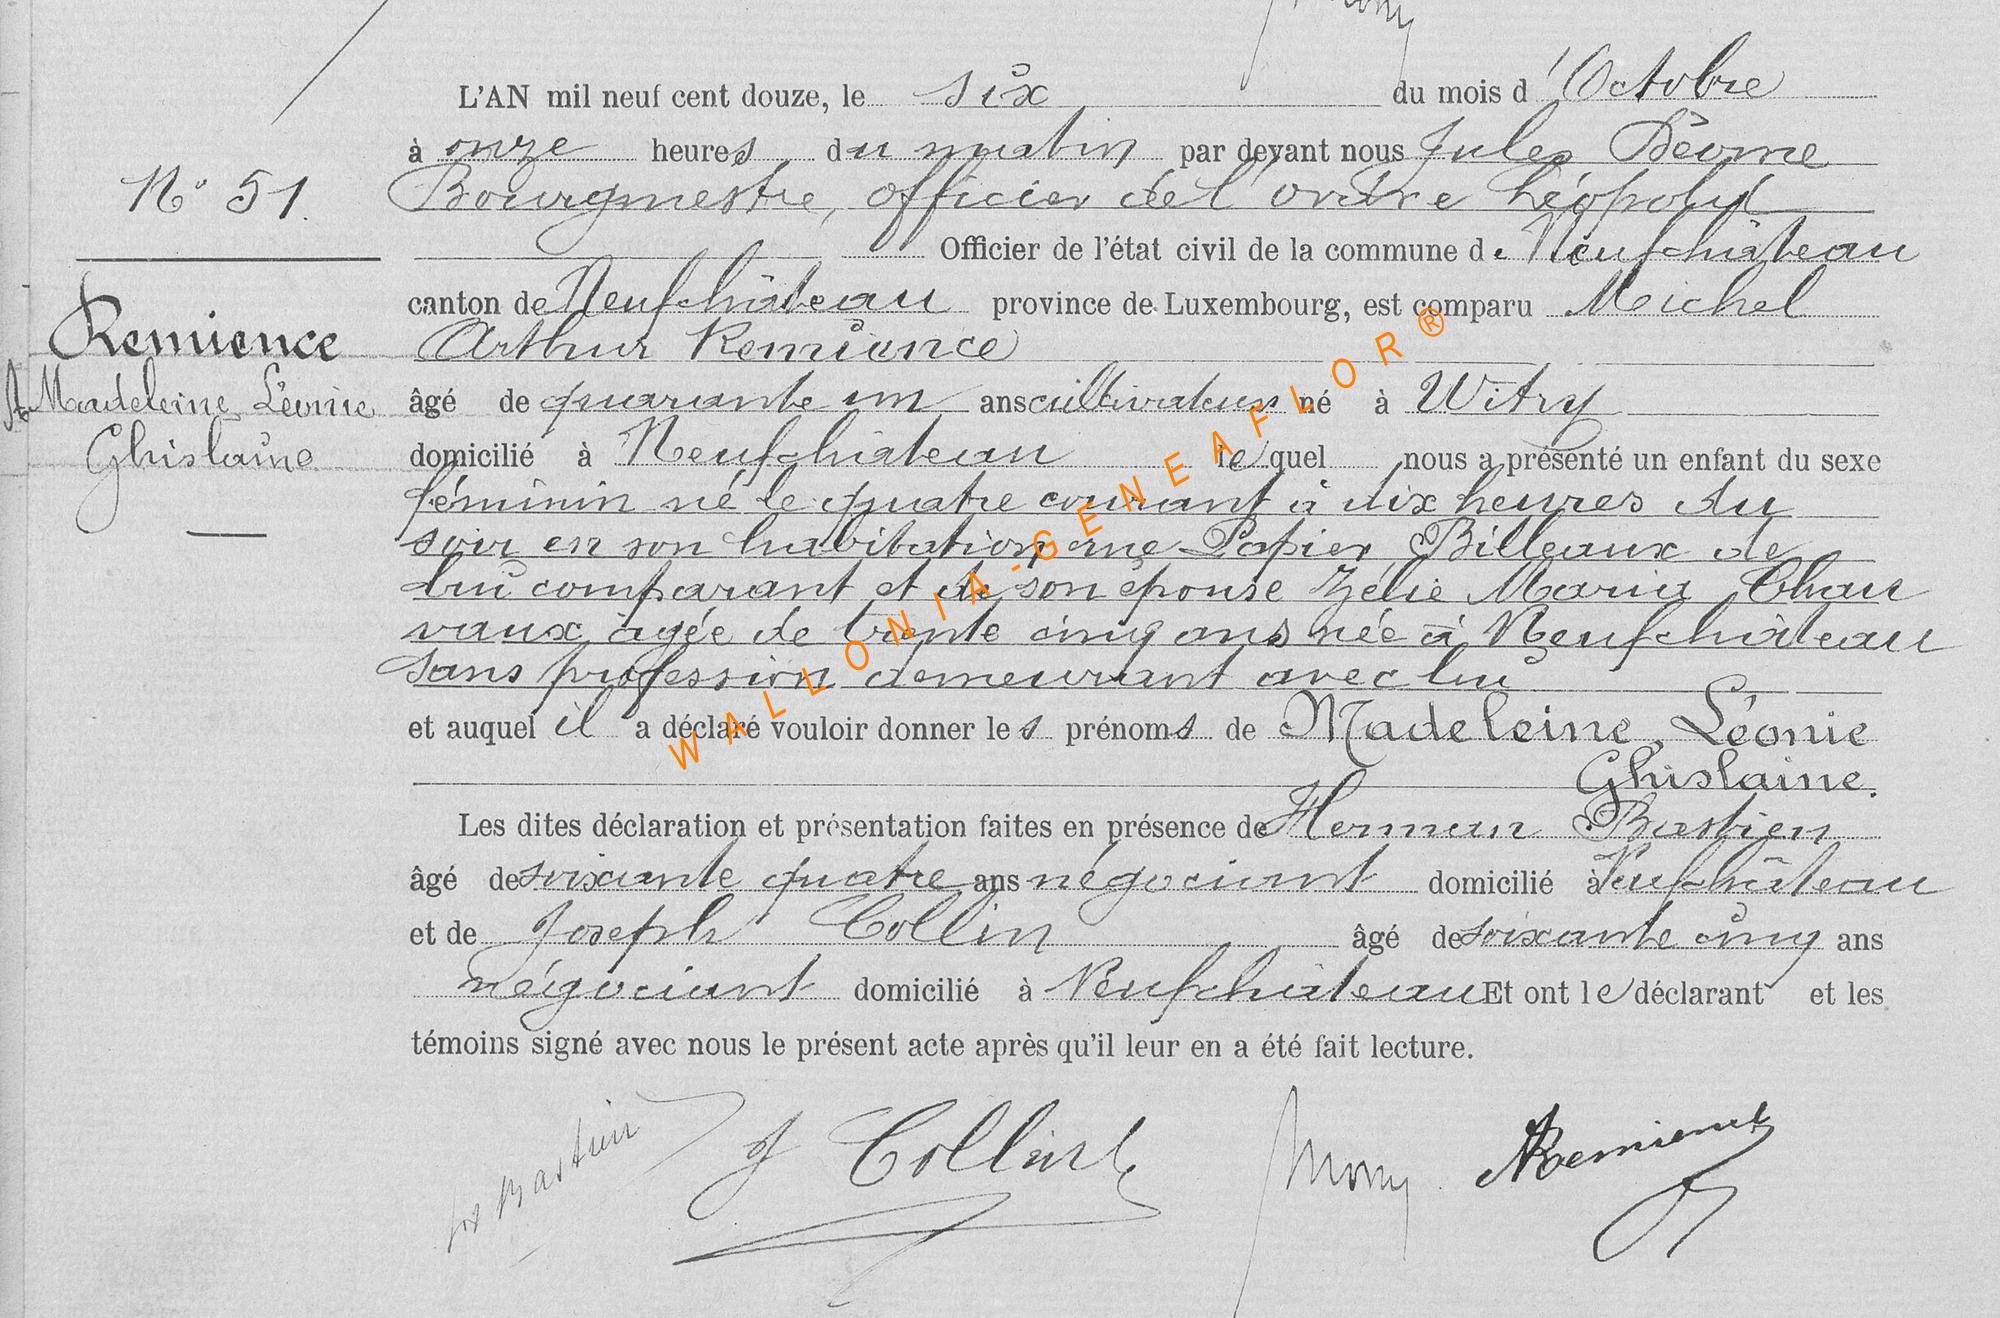 L'AN mil neuf cent douze, le six du mois d'Octobre
à onze heures du matin par devant nous Jules
Bourgmestre, officier de l'ordre Léopold
Officier de l'état civil de la commune de Neufchâteau
canton de Neufchâteau province de Luxembourg, est comparu Michel
Arthur Remience
âgé de quarante un ans cultivateur né à Witry
domicilié à Neufchâteau lequel nous a présenté un enfant du sexe
féminin né le quatre courant à dix heures du
soir en son habitation, rue Papier, Billeaux de
lui comparant et de son épouse Zélie Maria Chau
vaux âgée de trente cinq ans née à Neufchâteau
sans profession demeurant avec lui
et auquel il a déclaré vouloir donner les prénoms de Madeleine, Léonie
Ghislaine.
Les dites déclaration et présentation faites en présence de Herman Bastien
âgé de soixante quatre ans négociant domicilié à Neufchâteau
et de Joseph Collin âgé de soixante cinq ans
négociant domicilié à Neufchâteau Et ont le déclarant et les
témoins signé avec nous le présent acte après qu'il leur en a été fait lecture.
N° 51.
Remience
Madeleine, Léonie
Ghislaine
Bastien J Collin A Remience
WALLONIA-GENEAFLOR®